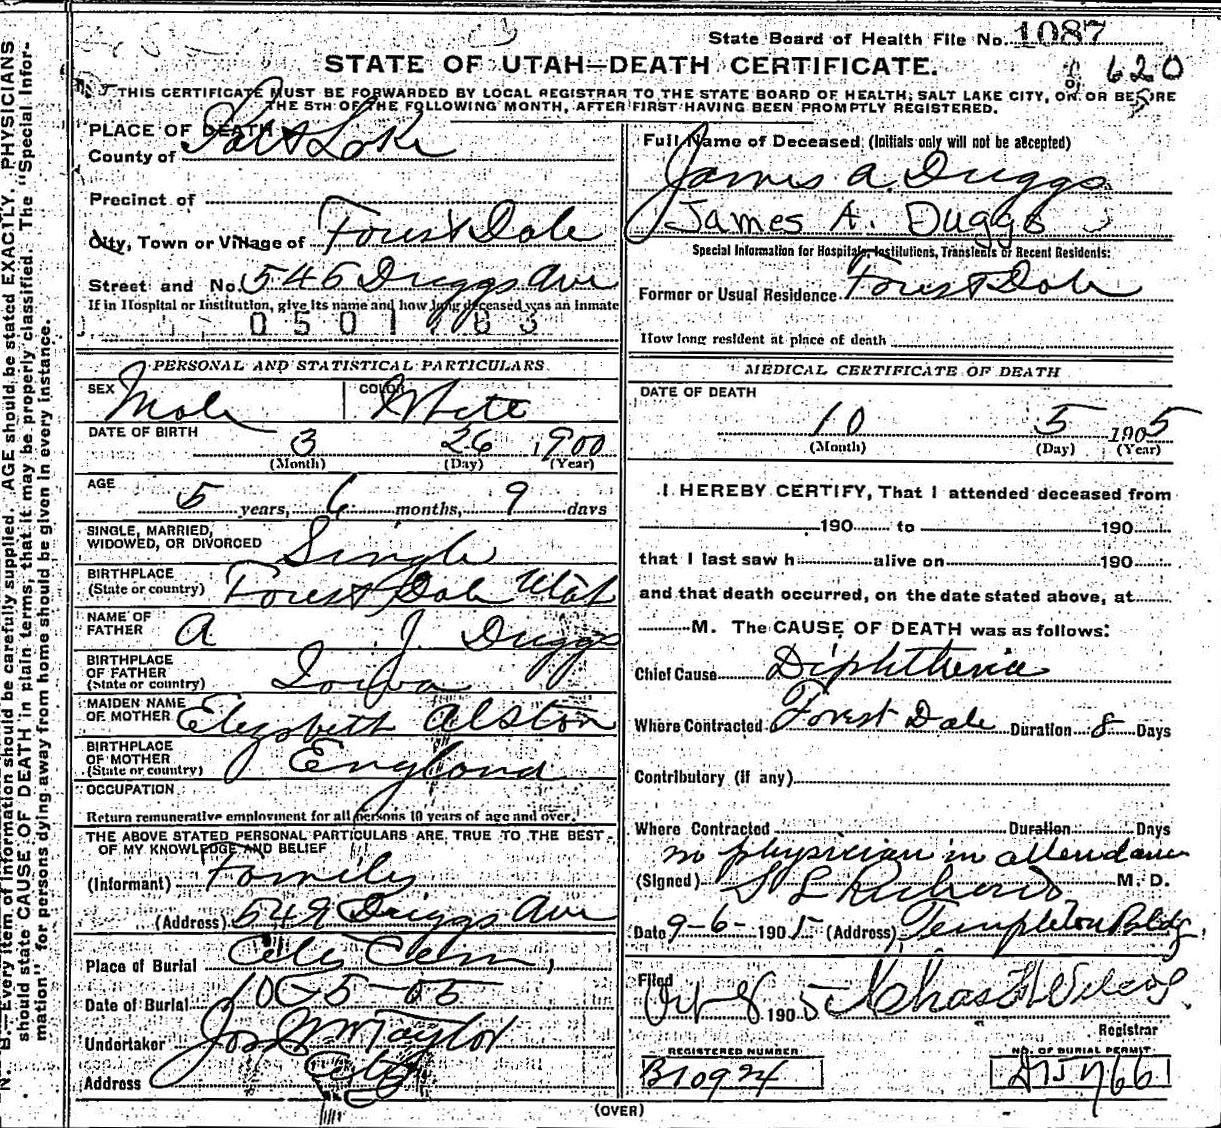 State Board of Health File No. 1087
STATE OF UTAH—DEATH CERTIFICATE.
620
THIS CERTIFICATE MUST BE FORWARDED BY LOCAL REGISTRAR TO THE STATE BOARD OF HEALTH, SALT LAKE CITY, ON OR BEFORE
THE 5TH OF THE FOLLOWING MONTH, AFTER FIRST HAVING BEEN PROMPTLY REGISTERED.
PLACE OF DEATH
County of Salt Lake
Precinct of
City, Town or Village of Forest Dale
Street and No. 546 Driggs Ave
If in Hospital or Institution, give its name and how long deceased was an inmate
0501183
PERSONAL AND STATISTICAL PARTICULARS.
SEX Male COLOR White
DATE OF BIRTH 3 26 1900
(Month) (Day) (Year)
AGE
5 years, 6 months, 9 days
SINGLE, MARRIED,
WIDOWED, OR DIVORCED Single
BIRTHPLACE
(State or country) Forest Dale Utah
NAME OF
FATHER A J. Driggs
BIRTHPLACE
OF FATHER
(State or country) Iowa
MAIDEN NAME
OF MOTHER Elizabeth Alston
BIRTHPLACE
OF MOTHER
(State or country) England
OCCUPATION
Return remunerative employment for all persons 10 years of age and over.
THE ABOVE STATED PERSONAL PARTICULARS ARE TRUE TO THE BEST
OF MY KNOWLEDGE AND BELIEF
(Informant) Family
(Address) 549 Driggs Ave
Place of Burial City Cem,
Date of Burial 10-5-05
Undertaker Jos Wm Taylor
Address City
Full Name of Deceased (Initials only will not be accepted)
James A. Driggs
James A. Duggs
Special Information for Hospitals, Institutions, Transients or Recent Residents:
Former or Usual Residence Forest Dale
How long resident at place of death
MEDICAL CERTIFICATE OF DEATH
DATE OF DEATH
10 5 1905
(Month) (Day) (Year)
I HEREBY CERTIFY, That I attended deceased from
190 to 190
that I last saw h alive on 190
and that death occurred, on the date stated above, at
M. The CAUSE OF DEATH was as follows:
Chief Cause Diphtheria
Where Contracted Forest Dale Duration 8 Days
Contributory (if any)
Where Contracted Duration Days
no physician in attendance
(Signed) S L Richards M. D.
Date 9-6- 1905 (Address) Templeton Bldg.
Filed
Oct 8 1905 Chas H Wilcox
Registrar
REGISTERED NUMBER
B10924
NO. OF BURIAL PERMIT
(OVER)
N. B.—Every item of information should be carefully supplied. AGE should be stated EXACTLY. PHYSICIANS
should state CAUSE OF DEATH in plain terms, that it may be properly classified. The "Special Infor-
mation" for persons dying away from home should be given in every instance.